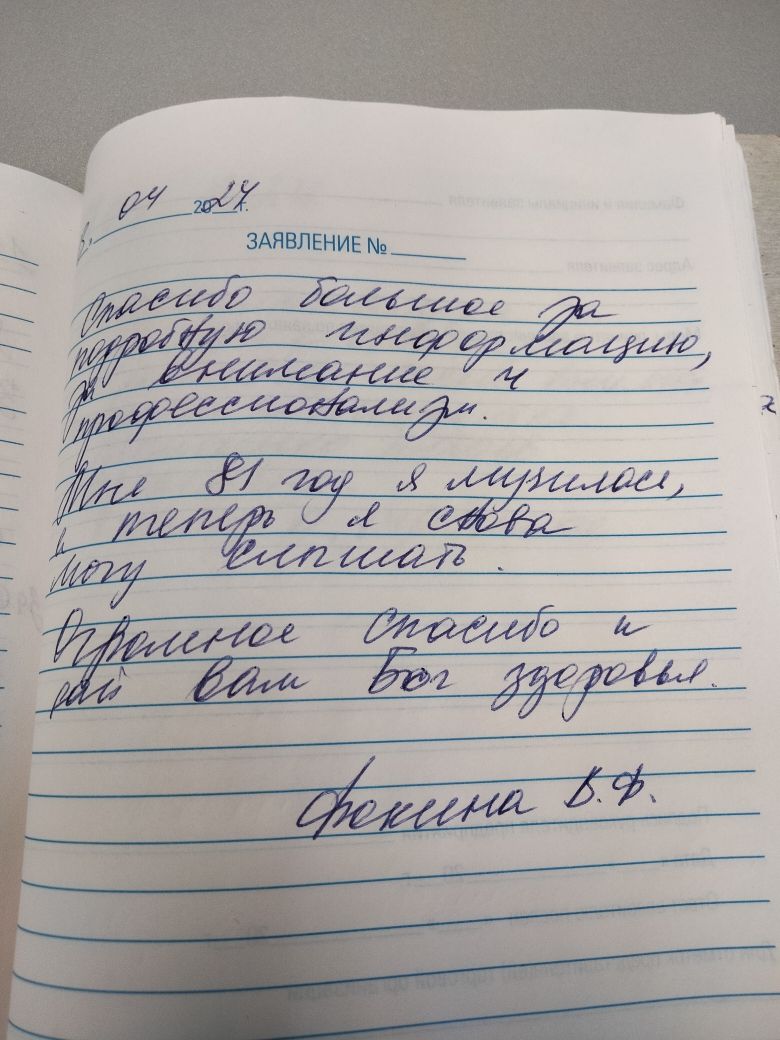 04 2024 г.
ЗАЯВЛЕНИЕ №
Спасибо большое за
подробную информацию,
за внимание и
профессионализм.
Мне 81 год я мучилась,
и теперь я снова
могу слышать.
Огромное спасибо и
дай Вам Бог здоровья.
Фокина В.Ф.